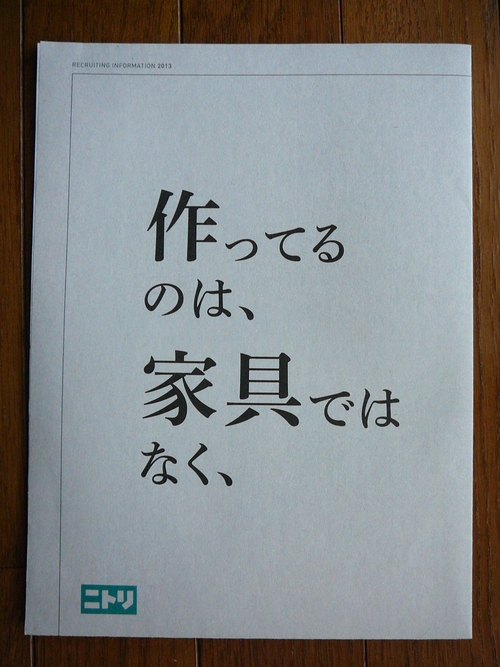 RECRUITING INFORMATION 2013
作ってる
のは、
家具では
なく、
ニトリ